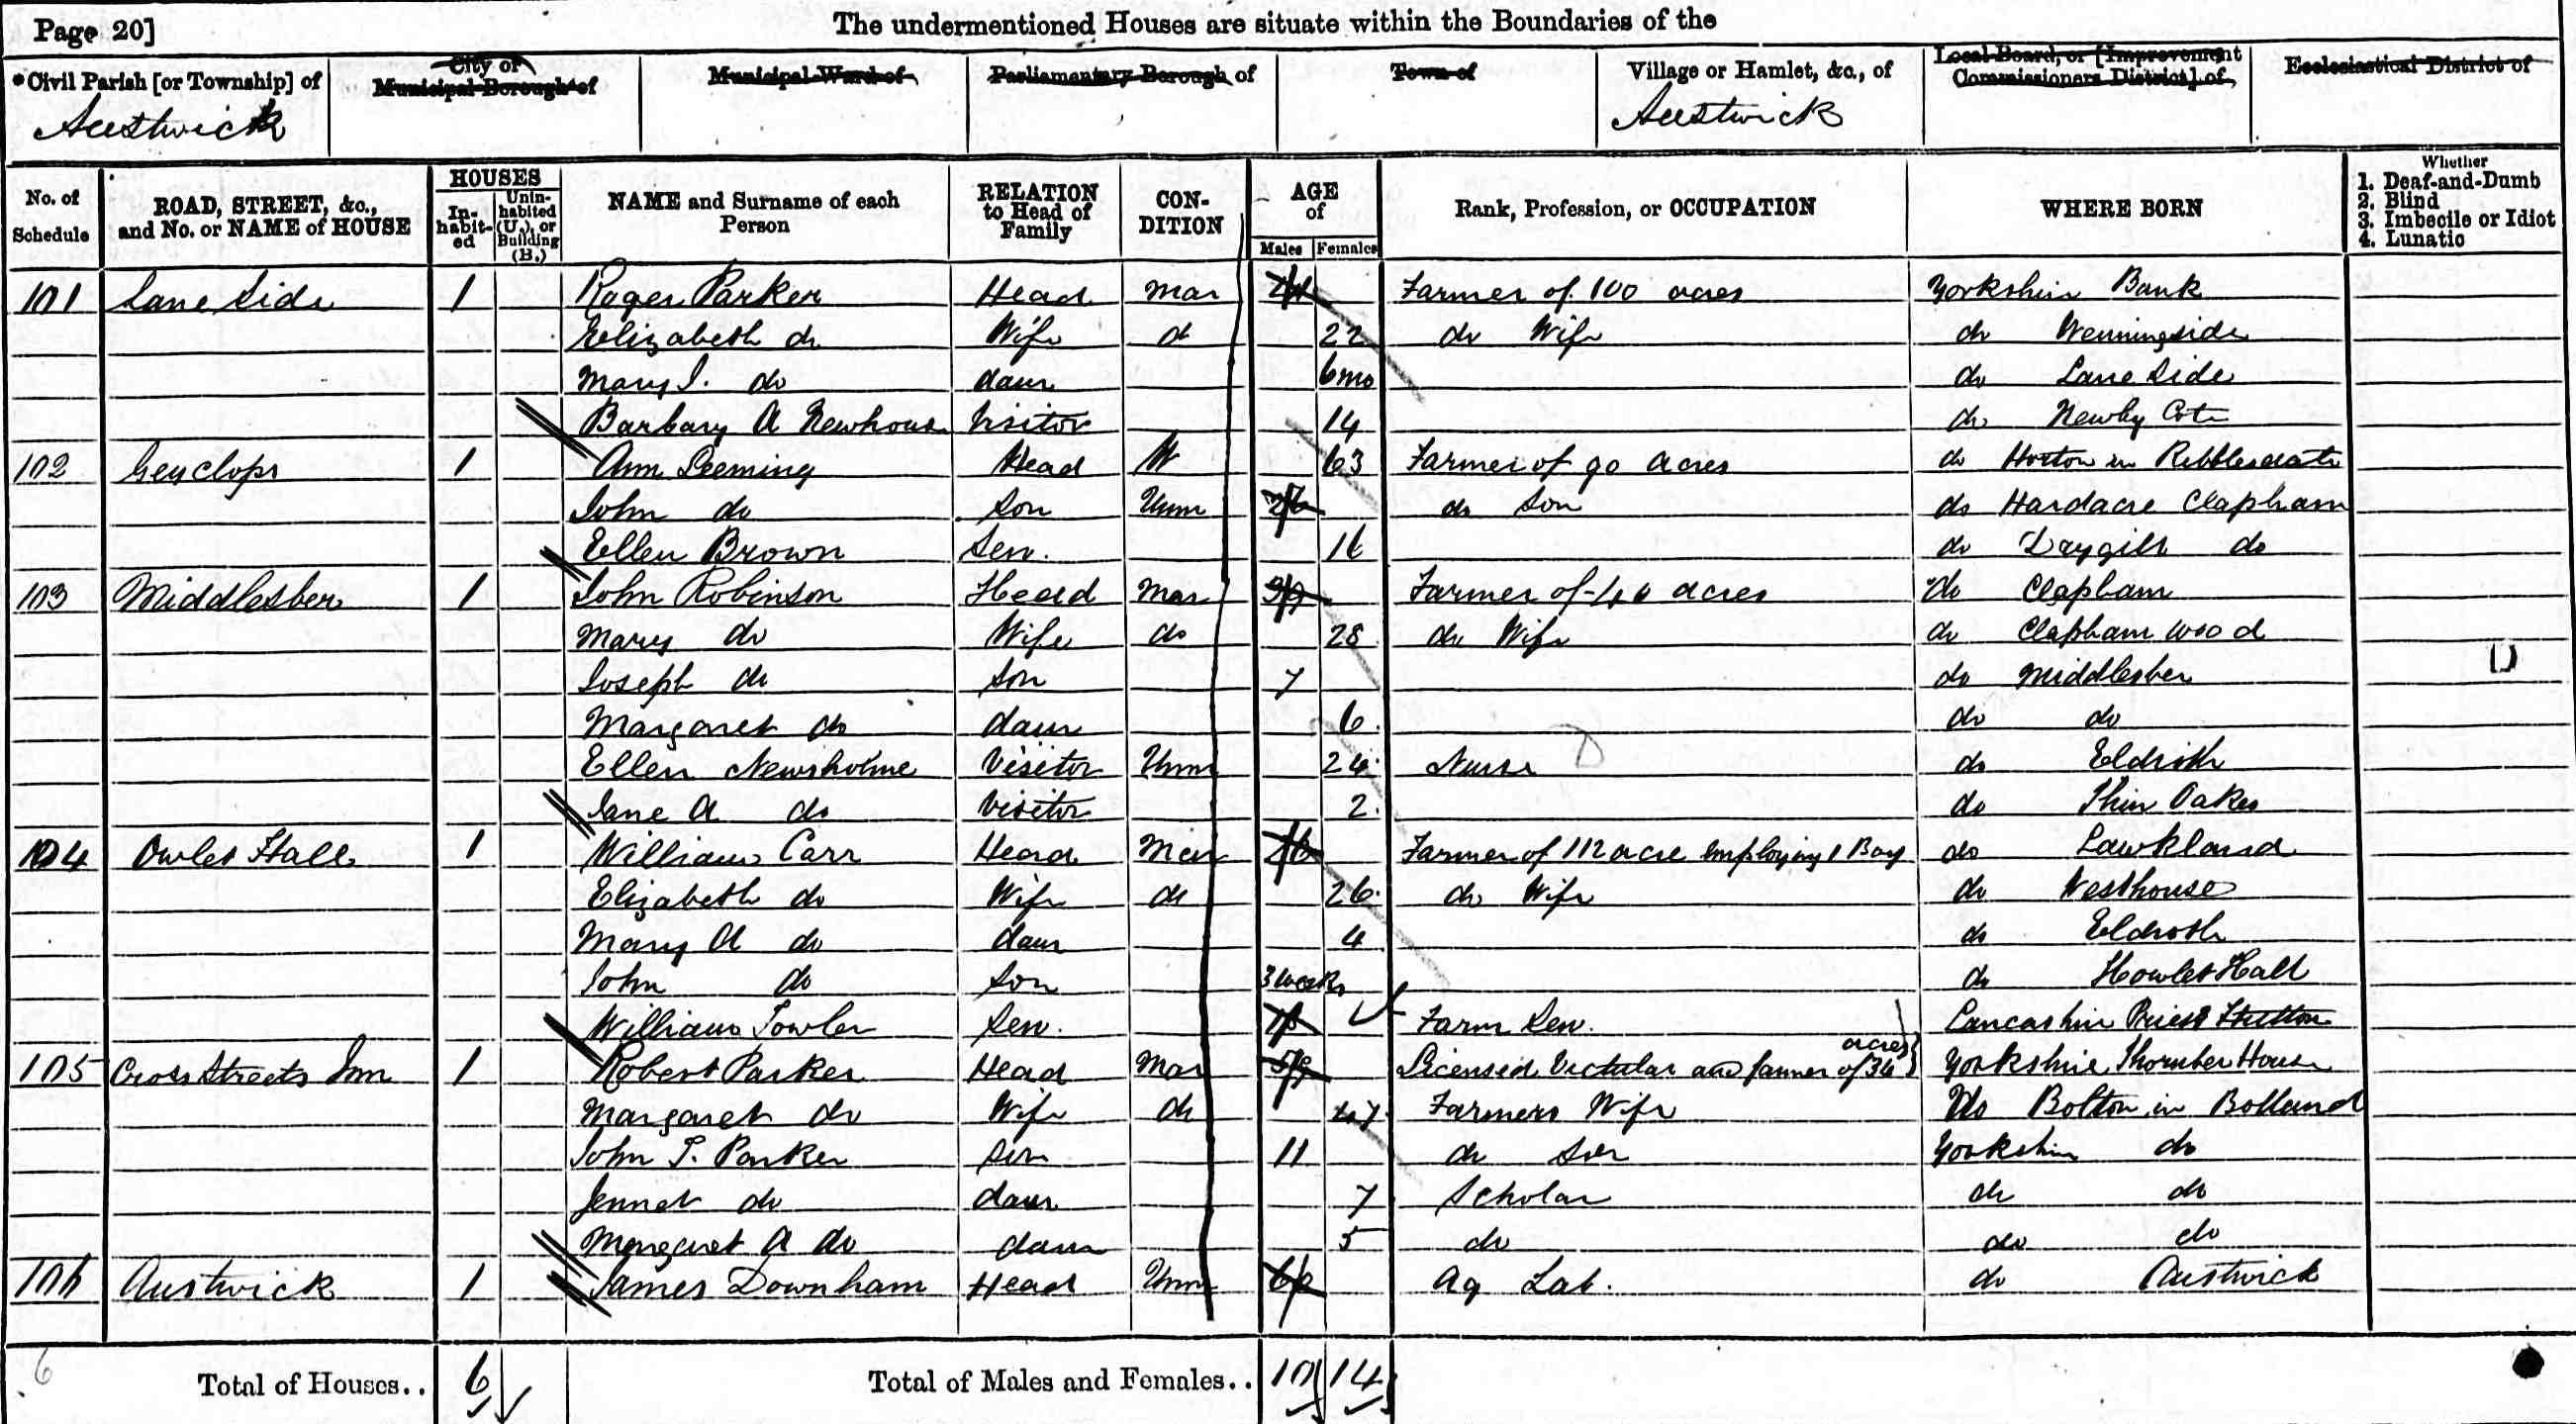 Page 20]
The undermentioned Houses are situate within the Boundaries of the
*Civil Parish [or Township] of
City or Municipal Borough of
Municipal Ward of
Parliamentary Borough of
Town of
Village or Hamlet, &c., of
Local Board, or [Improvement Commissioners District] of
Ecclesiastical District of
Austwick
Austwick
No. of Schedule
ROAD, STREET, &c., and No. or NAME of HOUSE
HOUSES
In-habit-ed
Unin-habited (U.), or Building (B.)
NAME and Surname of each Person
RELATION to Head of Family
CON-DITION
AGE of
Males
Females
Rank, Profession, or OCCUPATION
WHERE BORN
Whether
1. Deaf-and-Dumb
2. Blind
3. Imbecile or Idiot
4. Lunatic
101 Lane Side 1 Roger Parker Head Mar Farmer of 100 acres Yorkshire Bank
Elizabeth do Wife do 22 do Wife do Wenningside
Mary I. do daur 6mo do Lane Side
Barbary A Newhouse Visitor 14 do Newby Cote
102 1 Ann Leeming Head W 63 Farmer of 90 acres do Horton in Ribblesdale
John do Son Unm do Son do Hardacre Clapham
Ellen Brown Serv. 16 do do
103 Middlesber 1 John Robinson Head Mar Farmer of 40 acres do Clapham
Mary do Wife do 28 do Wife do Clapham Wood
Joseph do Son 7 do Middlesber
Margaret do daur 6 do do
Ellen Newsholme Visitor Unm 24 Nurse do Eldroth
Jane A do Visitor 2 do Thin Oakes
104 Owlet Hall 1 William Carr Head Mar Farmer of 112 acre employing 1 Boy do Lawkland
Elizabeth do Wife do 26 do Wife do Westhouse
Mary A do daur 4 do Eldroth
John do Son 3 weeks do Howlet Hall
William Towler Serv. Farm Serv. Lancashire Priest Hutton
105 Cross Streets Inn 1 Robert Parker Head Mar 59 Licensed Victular and farmer of 36 acres Yorkshire Thornber House
Margaret do Wife do 47 Farmers Wife Do Bolton in Bolland
John T. Parker Son 11 do Son Yorkshire do
Jennet do daur 7 Scholar do do
Margaret A do daur 5 do do do
106 Austwick 1 James Downham Head Unm Ag Lab. do Austwick
6
Total of Houses.. 6
Total of Males and Females.. 10 14